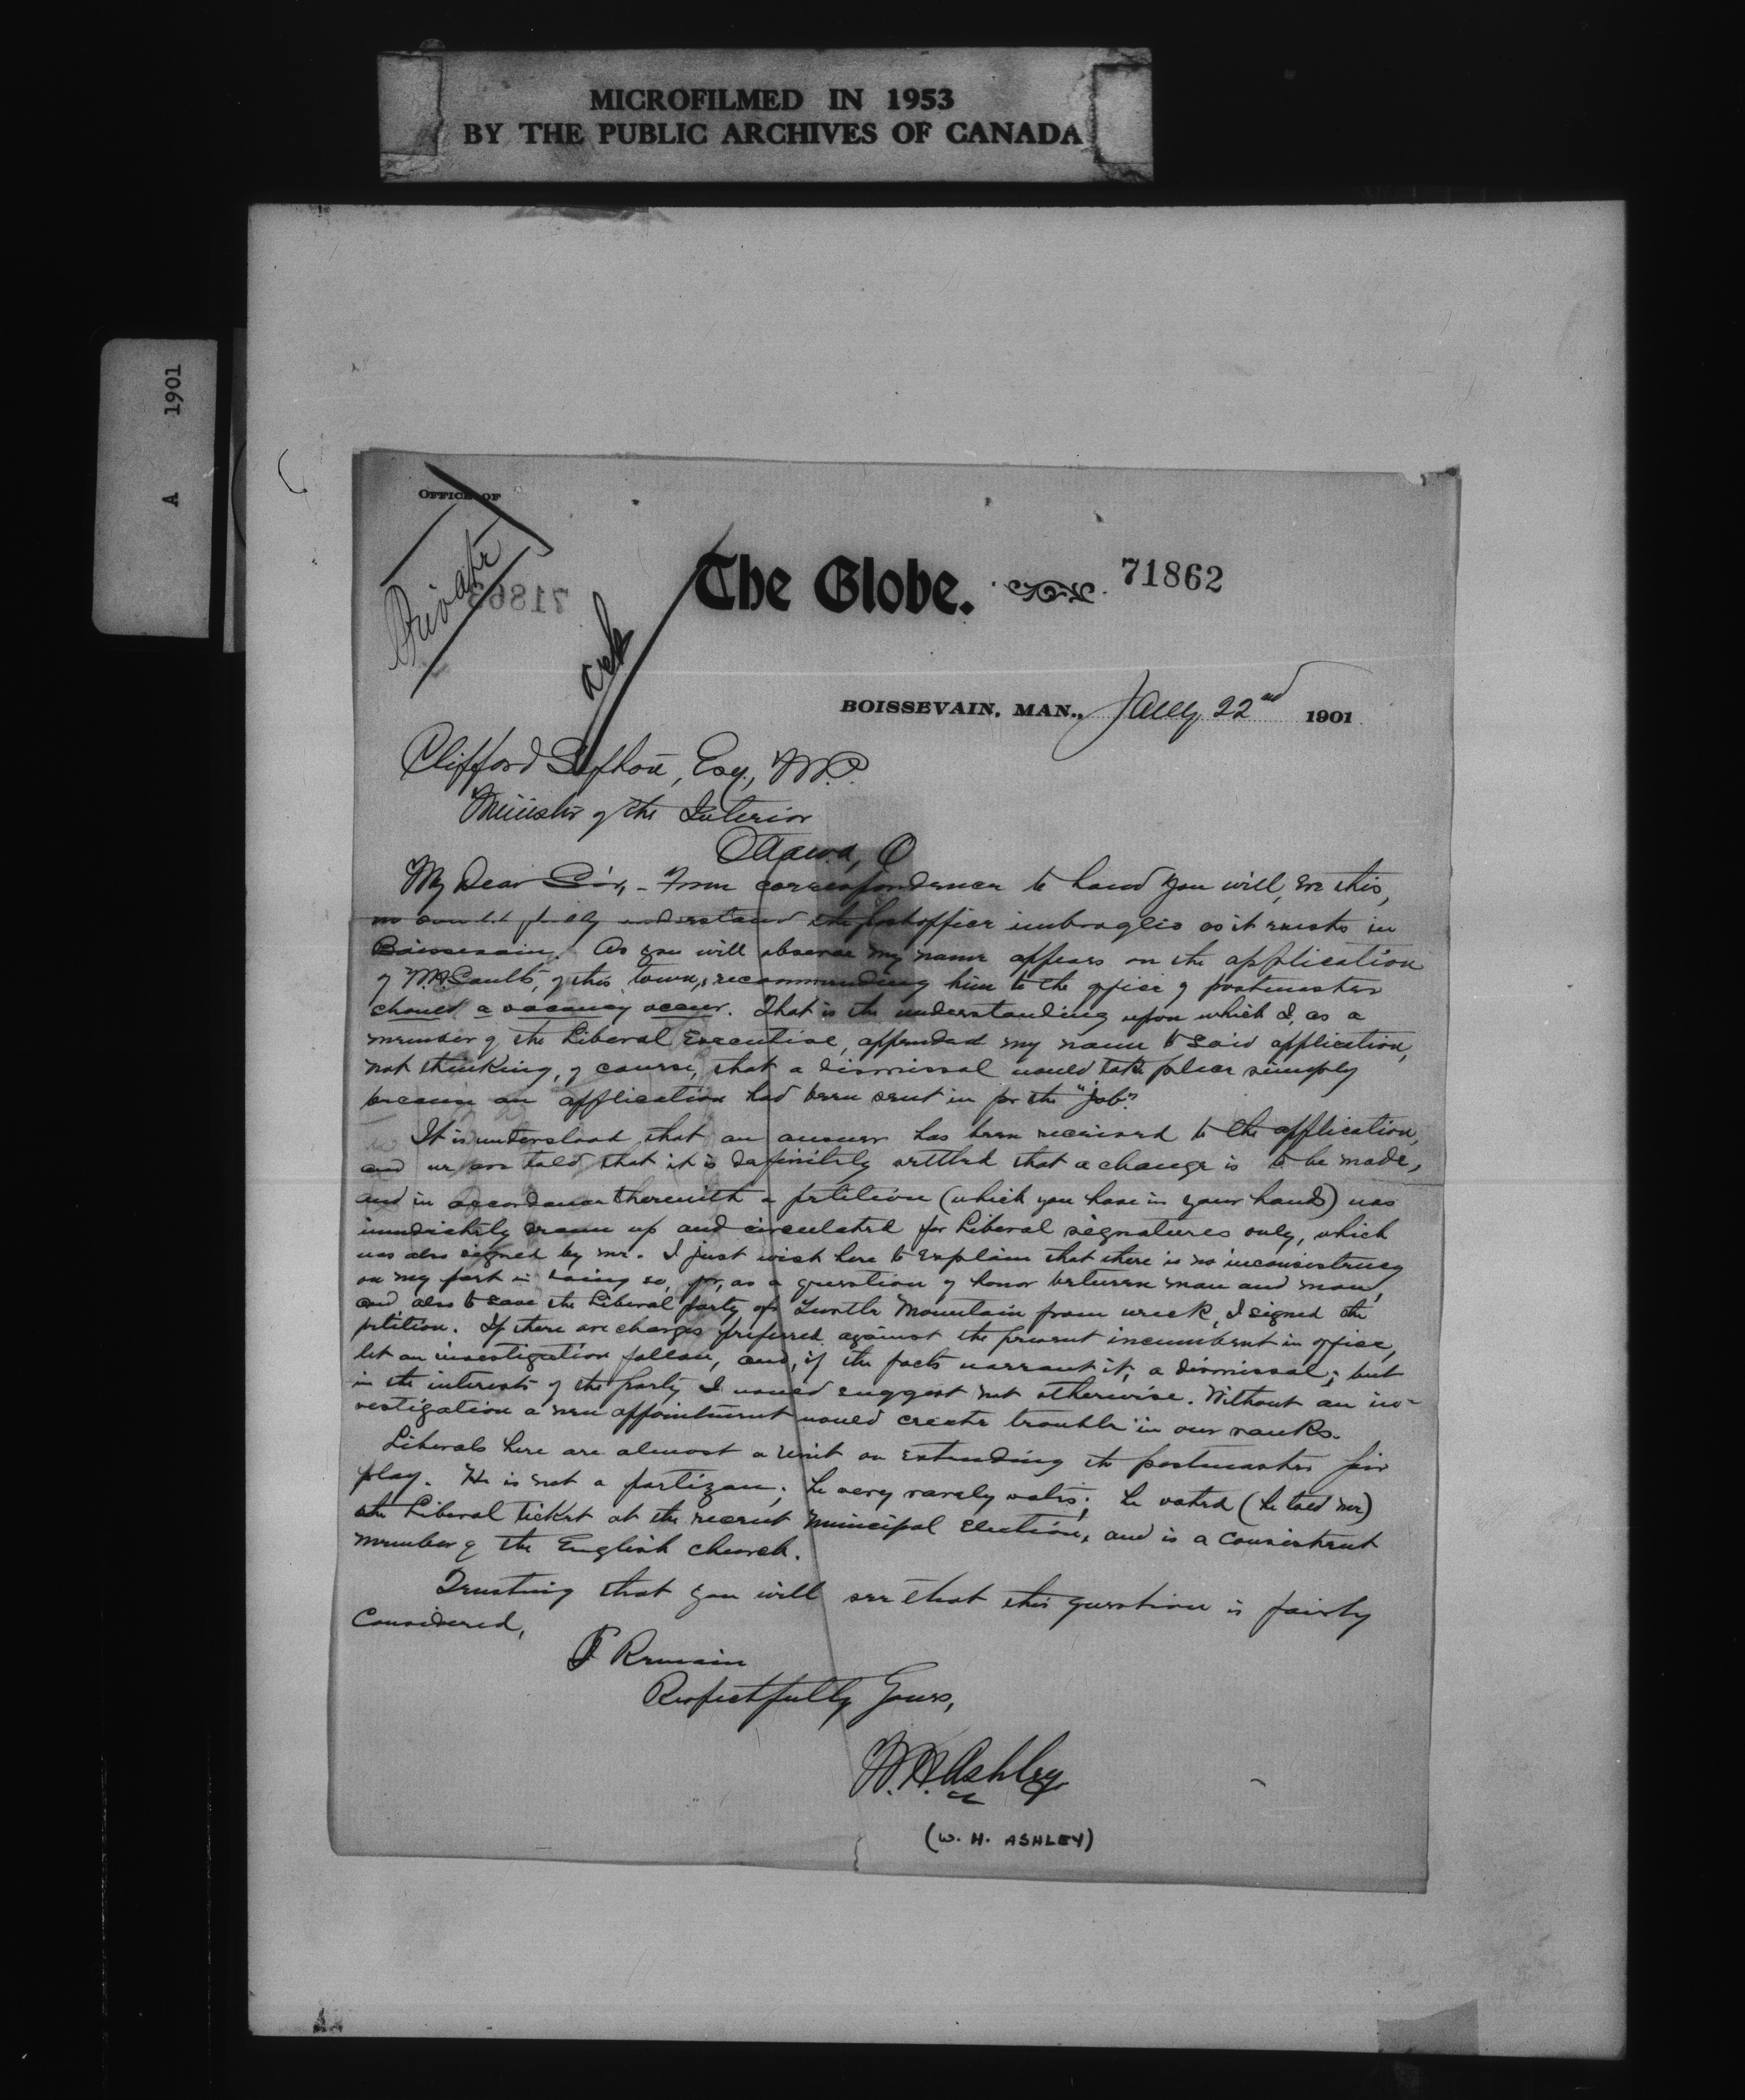 MICROFILMED IN 1953
BY THE PUBLIC ARCHIVES OF CANADA
A 1901
OFFICE OF
Private
The Globe.
71862
ack
BOISSEVAIN, MAN., Jany 22nd 1901
Clifford Sifton, Esq., M.P.
Minister of the Interior
Ottawa, O
My Dear Sir, - From correspondence to hand you will, ere this,
no doubt fully understand the postoffice imbroglio as it exists in
Boissevain. As you will observe my name appears on the application
of of this town, recommending him to the office of postmaster
should a vacancy occur. That is the understanding upon which I, as a
member of the Liberal Executive, appended my name to said application,
not thinking, of course, that a dismissal would take place simply
because an application had been sent in for the "job".
It is understood that an answer has been received to the application,
and we are told that it is definitely settled that a change is to be made,
and in accordance therewith a petition (which you have in your hands) was
immediately drawn up and circulated for Liberal signatures only, which
was also signed by me. I just wish here to explain that there is no inconsistency
on my part in doing so, for, as a question of honor between man and man,
and also to save the Liberal party of Turtle Mountain from wreck, I signed the
petition. If there are charges preferred against the present incumbent in office,
let an investigation follow, and, if the facts warrant it, a dismissal; but
in the interests of the party I would suggest not otherwise. Without an in-
vestigation a new appointment would create trouble in our ranks.
Liberals here are almost a unit on extending the postmaster fair
play. He is not a partizan; he very rarely votes; he voted (he told me)
the Liberal ticket at the recent municipal election, and is a consistent
member of the English church.
Trusting that you will see that this question is fairly
Considered,
I Remain
Respectfully Yours,
W.H. Ashley
(W. H. ASHLEY)